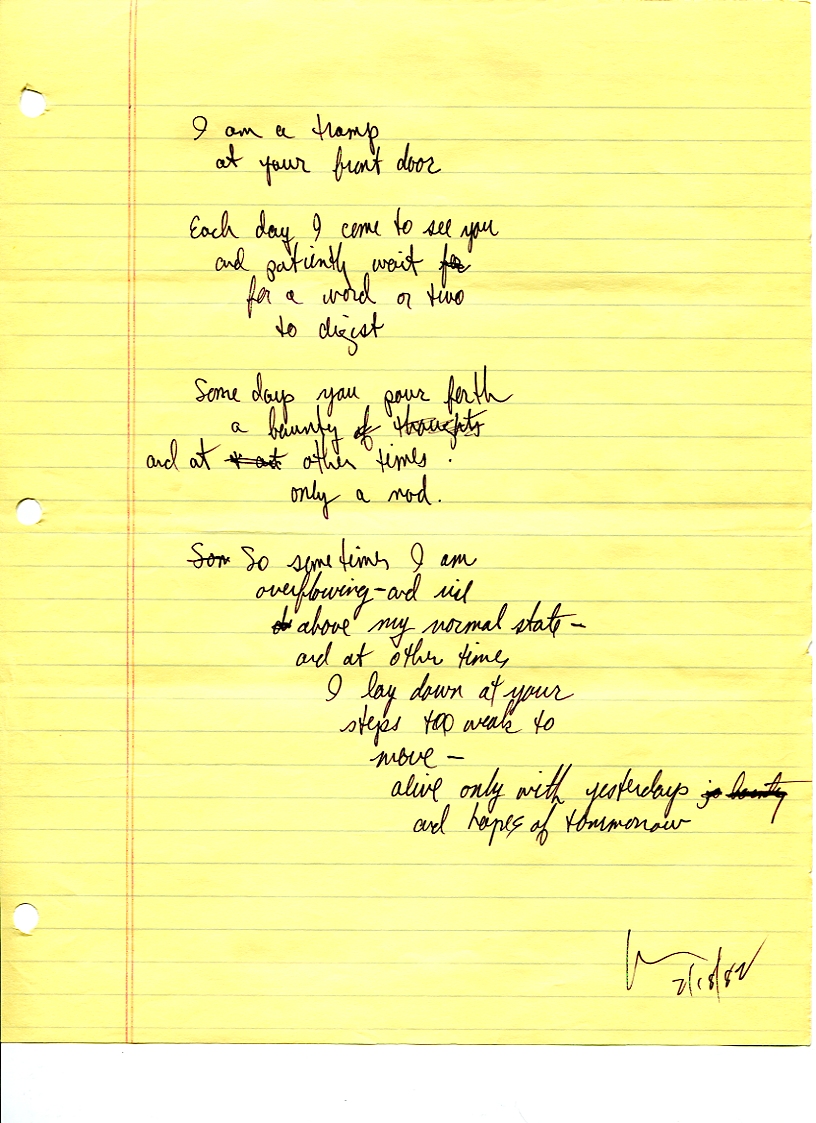 I am a tramp
at your front door
Each day I come to see you
and patiently wait for
for a word or two
to digist
Some days you pour forth
a bounty of thoughts
and at other times
only a nod.
Som So sometimes I am
overflowing - and
above my normal state -
and at other times
I lay down at your
steps too weak to
move -
alive only with yesterdays bounty
and hopes of tommorrow